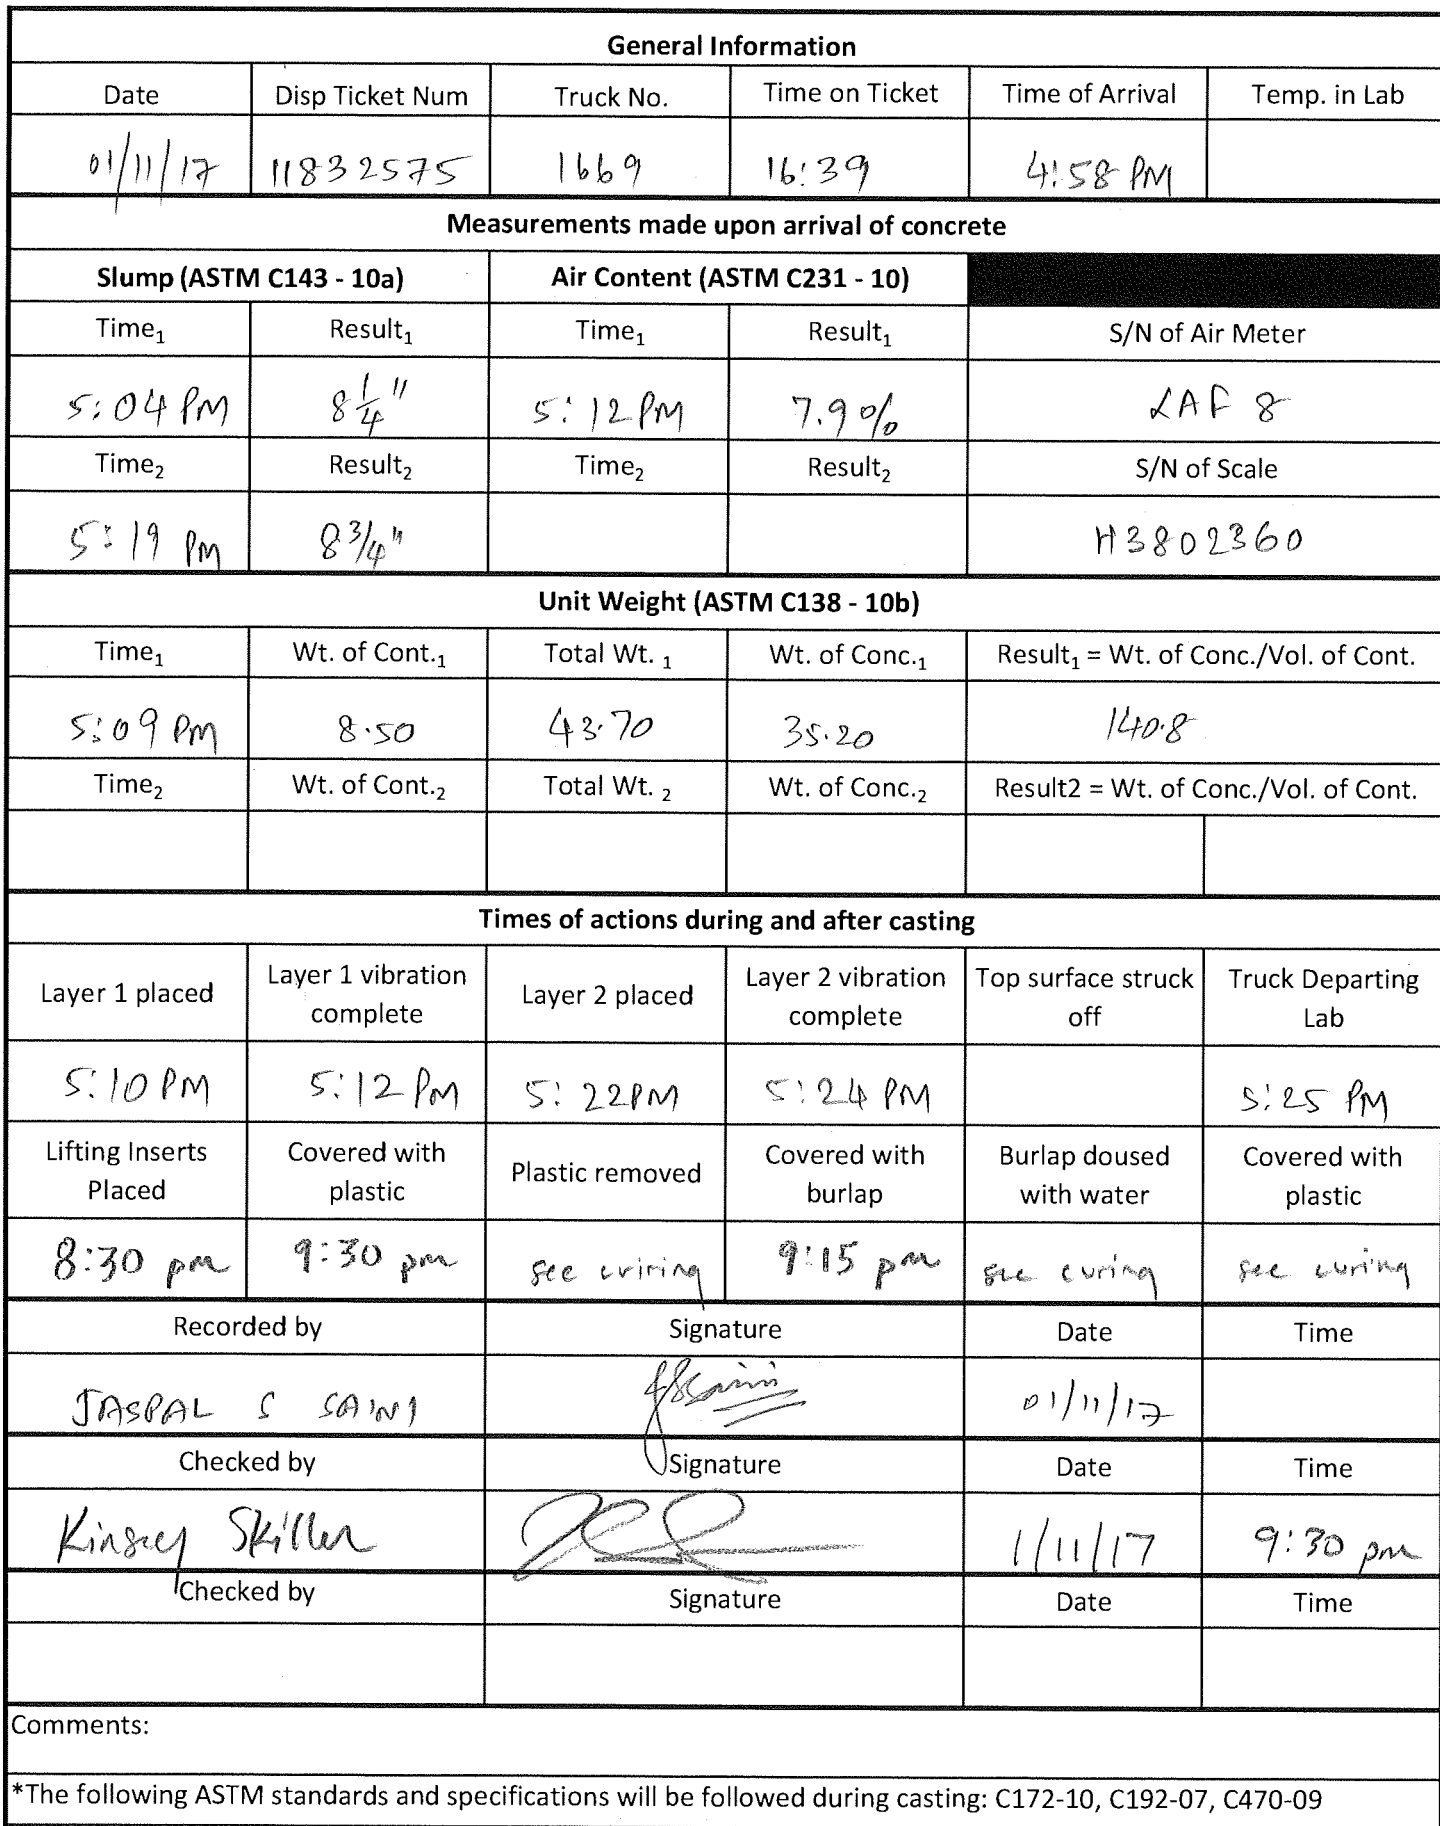 General Information
Date Disp Ticket Num Truck No. Time on Ticket Time of Arrival Temp. in Lab
01/11/17 11832575 1669 16:39 4:58 PM
Measurements made upon arrival of concrete
Slump (ASTM C143 - 10a) Air Content (ASTM C231 - 10)
Time1 Result1 Time1 Result1 S/N of Air Meter
5:04 PM 8 1/4" 5:12 PM 7.9% LAF 8
Time2 Result2 Time2 Result2 S/N of Scale
5:19 PM 8 3/4" H3802360
Unit Weight (ASTM C138 - 10b)
Time1 Wt. of Cont.1 Total Wt. 1 Wt. of Conc.1 Result1 = Wt. of Conc./Vol. of Cont.
5:09 PM 8.50 43.70 35.20 140.8
Time2 Wt. of Cont.2 Total Wt. 2 Wt. of Conc.2 Result2 = Wt. of Conc./Vol. of Cont.
Times of actions during and after casting
Layer 1 placed Layer 1 vibration complete Layer 2 placed Layer 2 vibration complete Top surface struck off Truck Departing Lab
5:10 PM 5:12 PM 5:22 PM 5:24 PM 5:25 PM
Lifting Inserts Placed Covered with plastic Plastic removed Covered with burlap Burlap doused with water Covered with plastic
8:30 pm 9:30 pm see curing 9:15 pm see curing see curing
Recorded by Signature Date Time
JASPAL S SAINI 01/11/17
Checked by Signature Date Time
Skillen 1/11/17 9:30 pm
Checked by Signature Date Time
Comments:
*The following ASTM standards and specifications will be followed during casting: C172-10, C192-07, C470-09